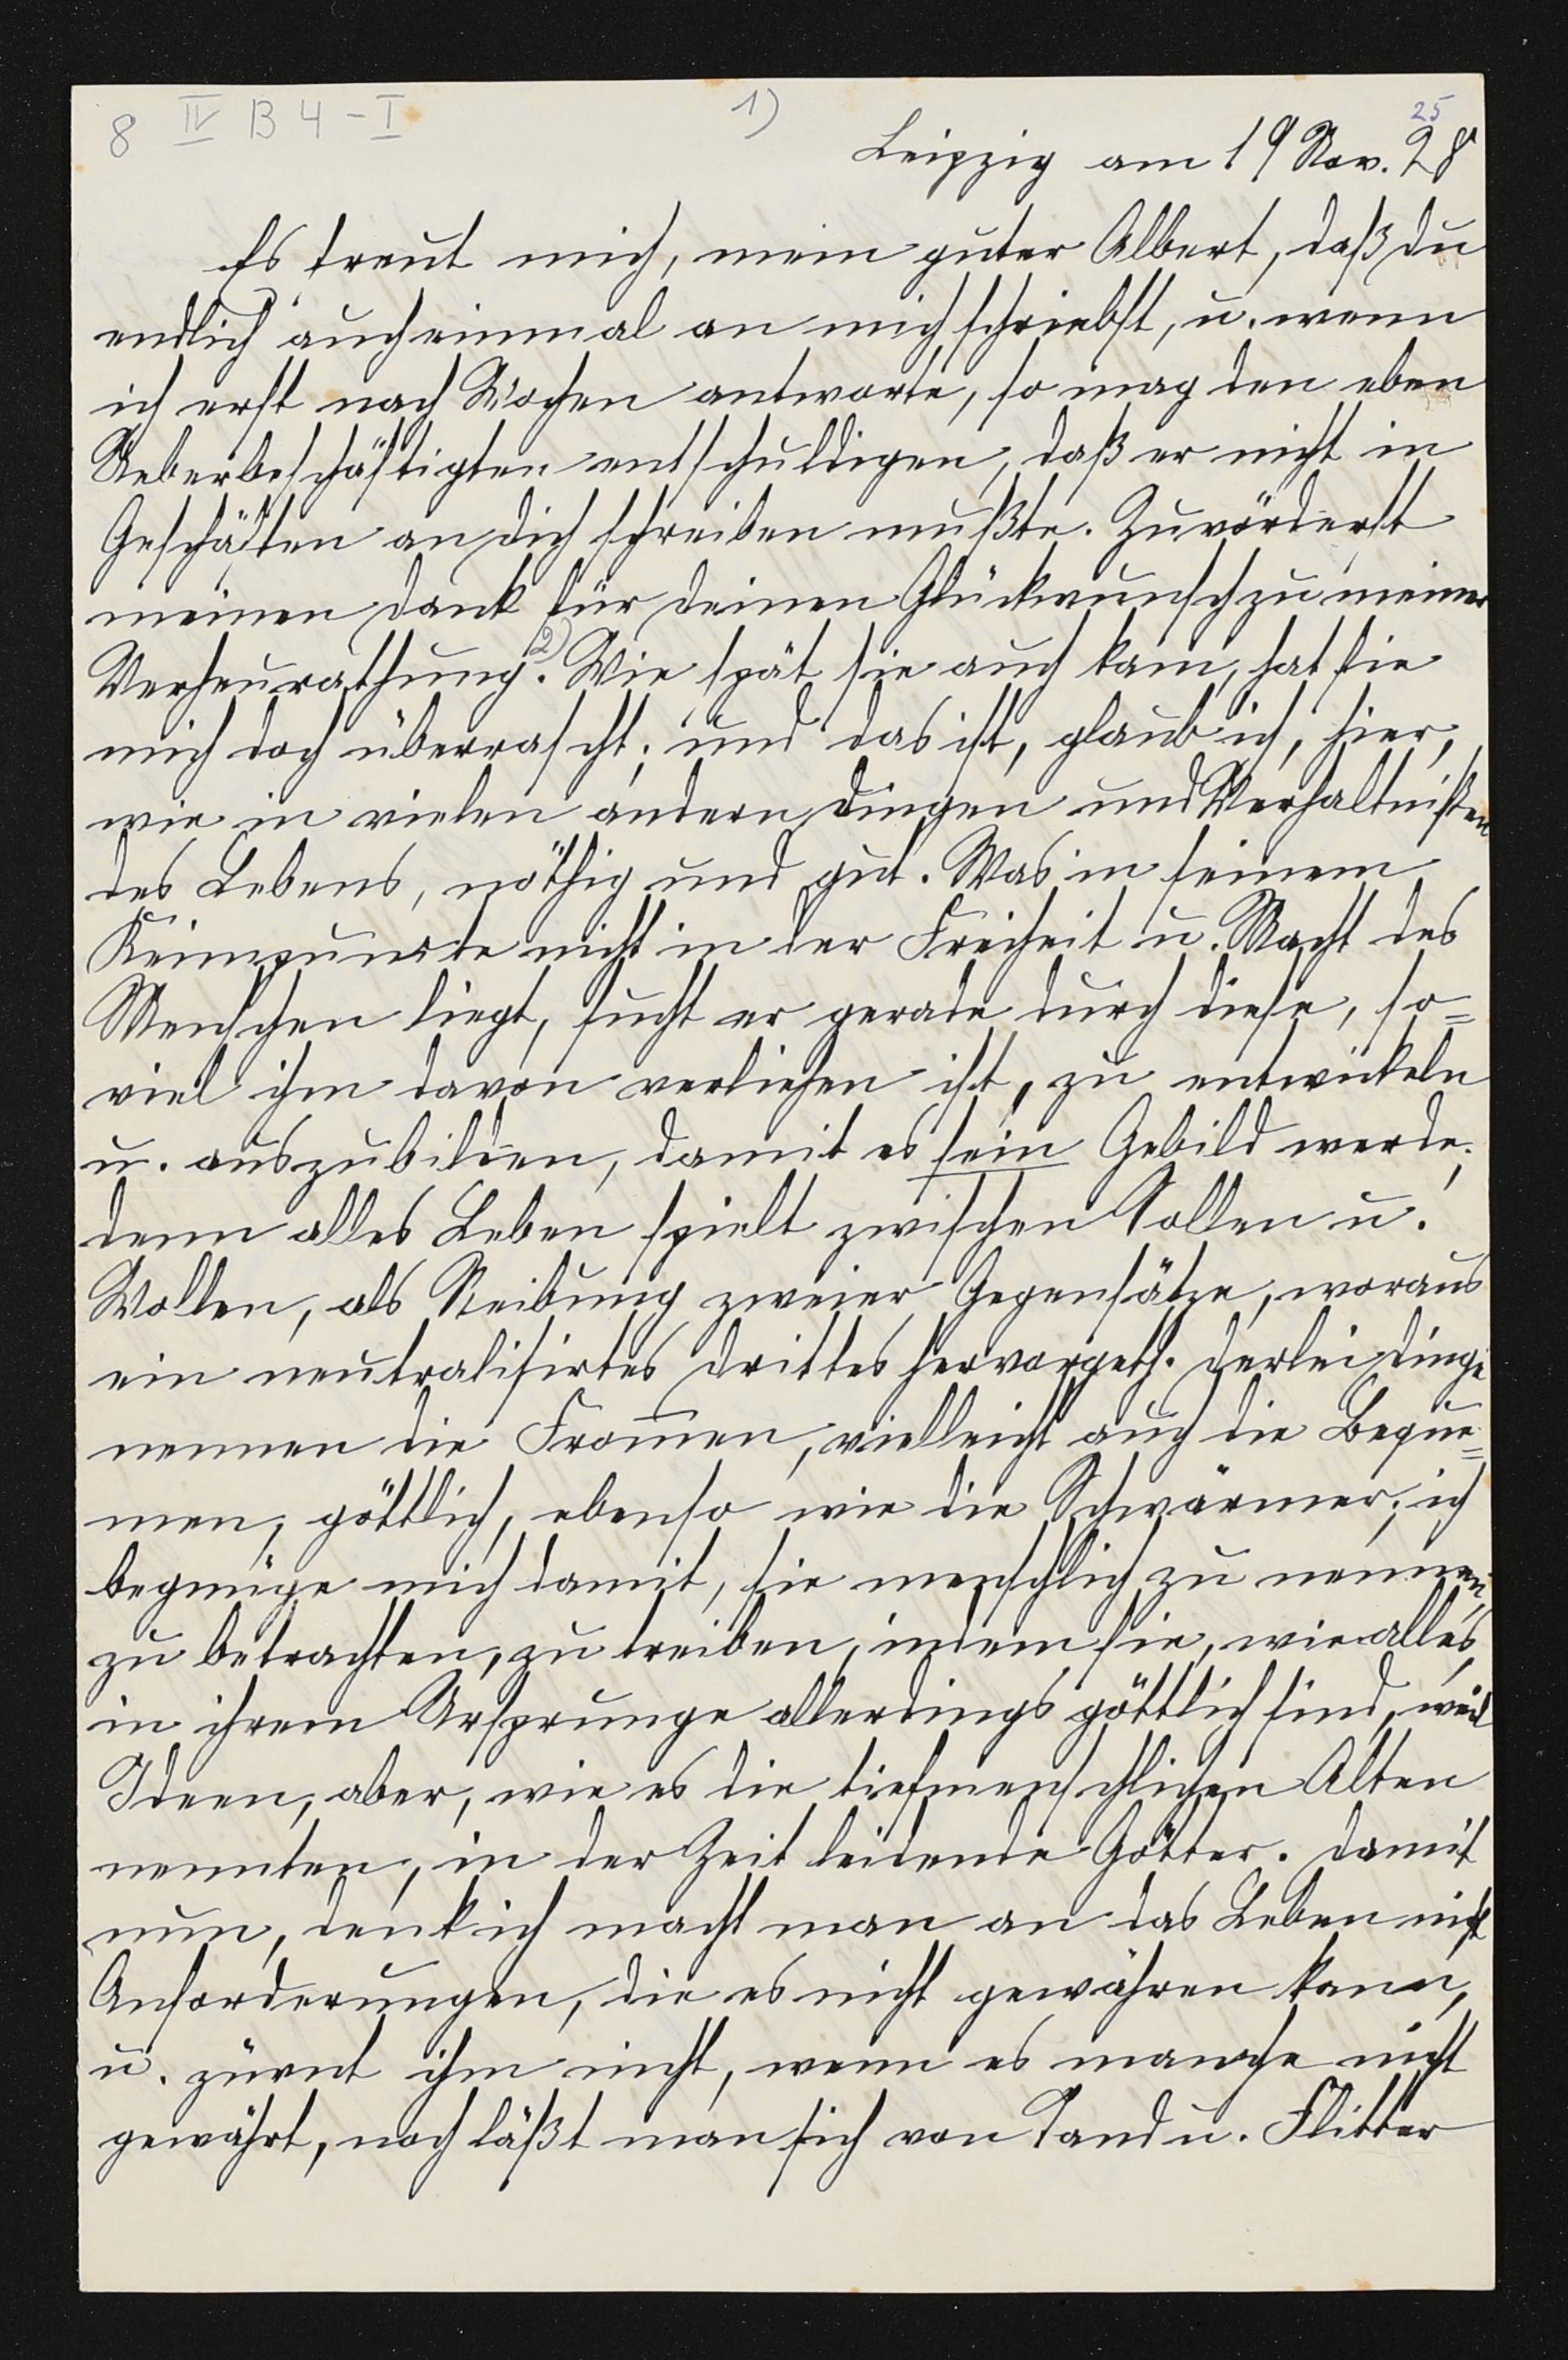 8 IV B 4 - I
1)
25
Leipzig am 19 Nov. 28
Es freut mich, mein guter Albert, daß du
endlich auch einmal an mich schriebst, u. wenn
ich erst nach Wochen antworte, so mag den eben
Ueberbeschäftigten entschuldigen, daß er nicht in
Geschäften an dich schreiben mußte. Zuvörderst
meinen dank für deinen Glückwunsch zu meiner
Verheurathung. 2) Wie spät sie auch kam, hat sie
mich doch überrascht; und das ist, glaub ich, hier,
wie in vielen andern dingen und Verhaltnißen
des Lebens, nöthig und gut. Was in seinem
Keimpuncte nicht in der Freiheit u. Macht des
Menschen liegt, sucht er gerade durch diese, so=
viel ihm davon verliehen ist, zu entwickeln
u. auszubilden, damit es sein Gebild werde;
denn alles Leben spielt zwischen Sollen u.
Wollen, als Reibung zweier Gegensätze, woraus
ein neutralisirtes drittes hervorgeth. derlei dinge
nennen die From̄en, vielleicht auch die Beque=
men, göttlich, ebenso wie die Schwärmer; ich
begnüge mich damit, sie menschlich zu nennen,
zu betrachten, zu treiben, indem sie, wie alles,
in ihrem Ursprunge allerdings göttlich sind, weil
Ideen, aber, wie es die tiefmenschlichen Alten
nennten, in der Zeit leidende Götter. damit
nun, denk ich macht man an das Leben nicht
Anforderungen, die es nicht gewähren kann,
u. zürnt ihm nicht, wenn es manche nicht
gewährt, noch läßt man sich von Tand u. Flitter